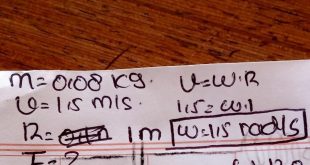 m = 0.08 kg. v = w.R
v = 1.5 m/s 1.5 = w.1
R = 1m w = 1.5 rad/s
F = ?